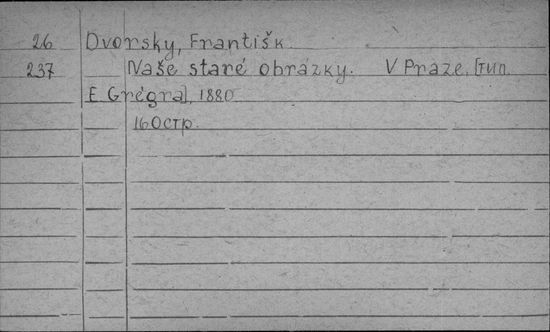 26 Dvorsky, Františk
237 Naše staré obrázky. V Praze, [тип.
E. Grégra], 1880.
160 стр.